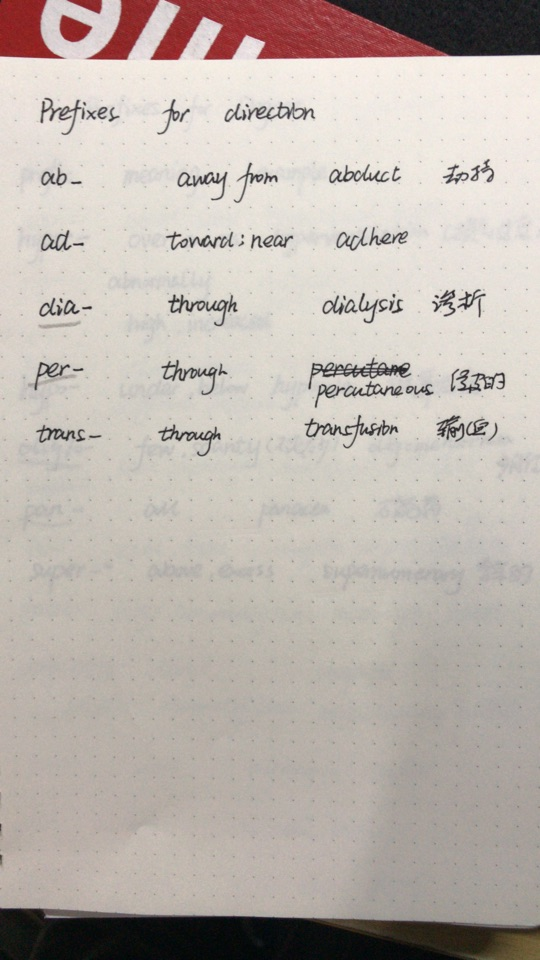 Prefixes for direction
ab- away from abduct 劫持
ad- toward; near adhere
dia- through dialysis 渗析
per- through percutane
percutaneous 经皮的
trans- through transfusion 输(血)